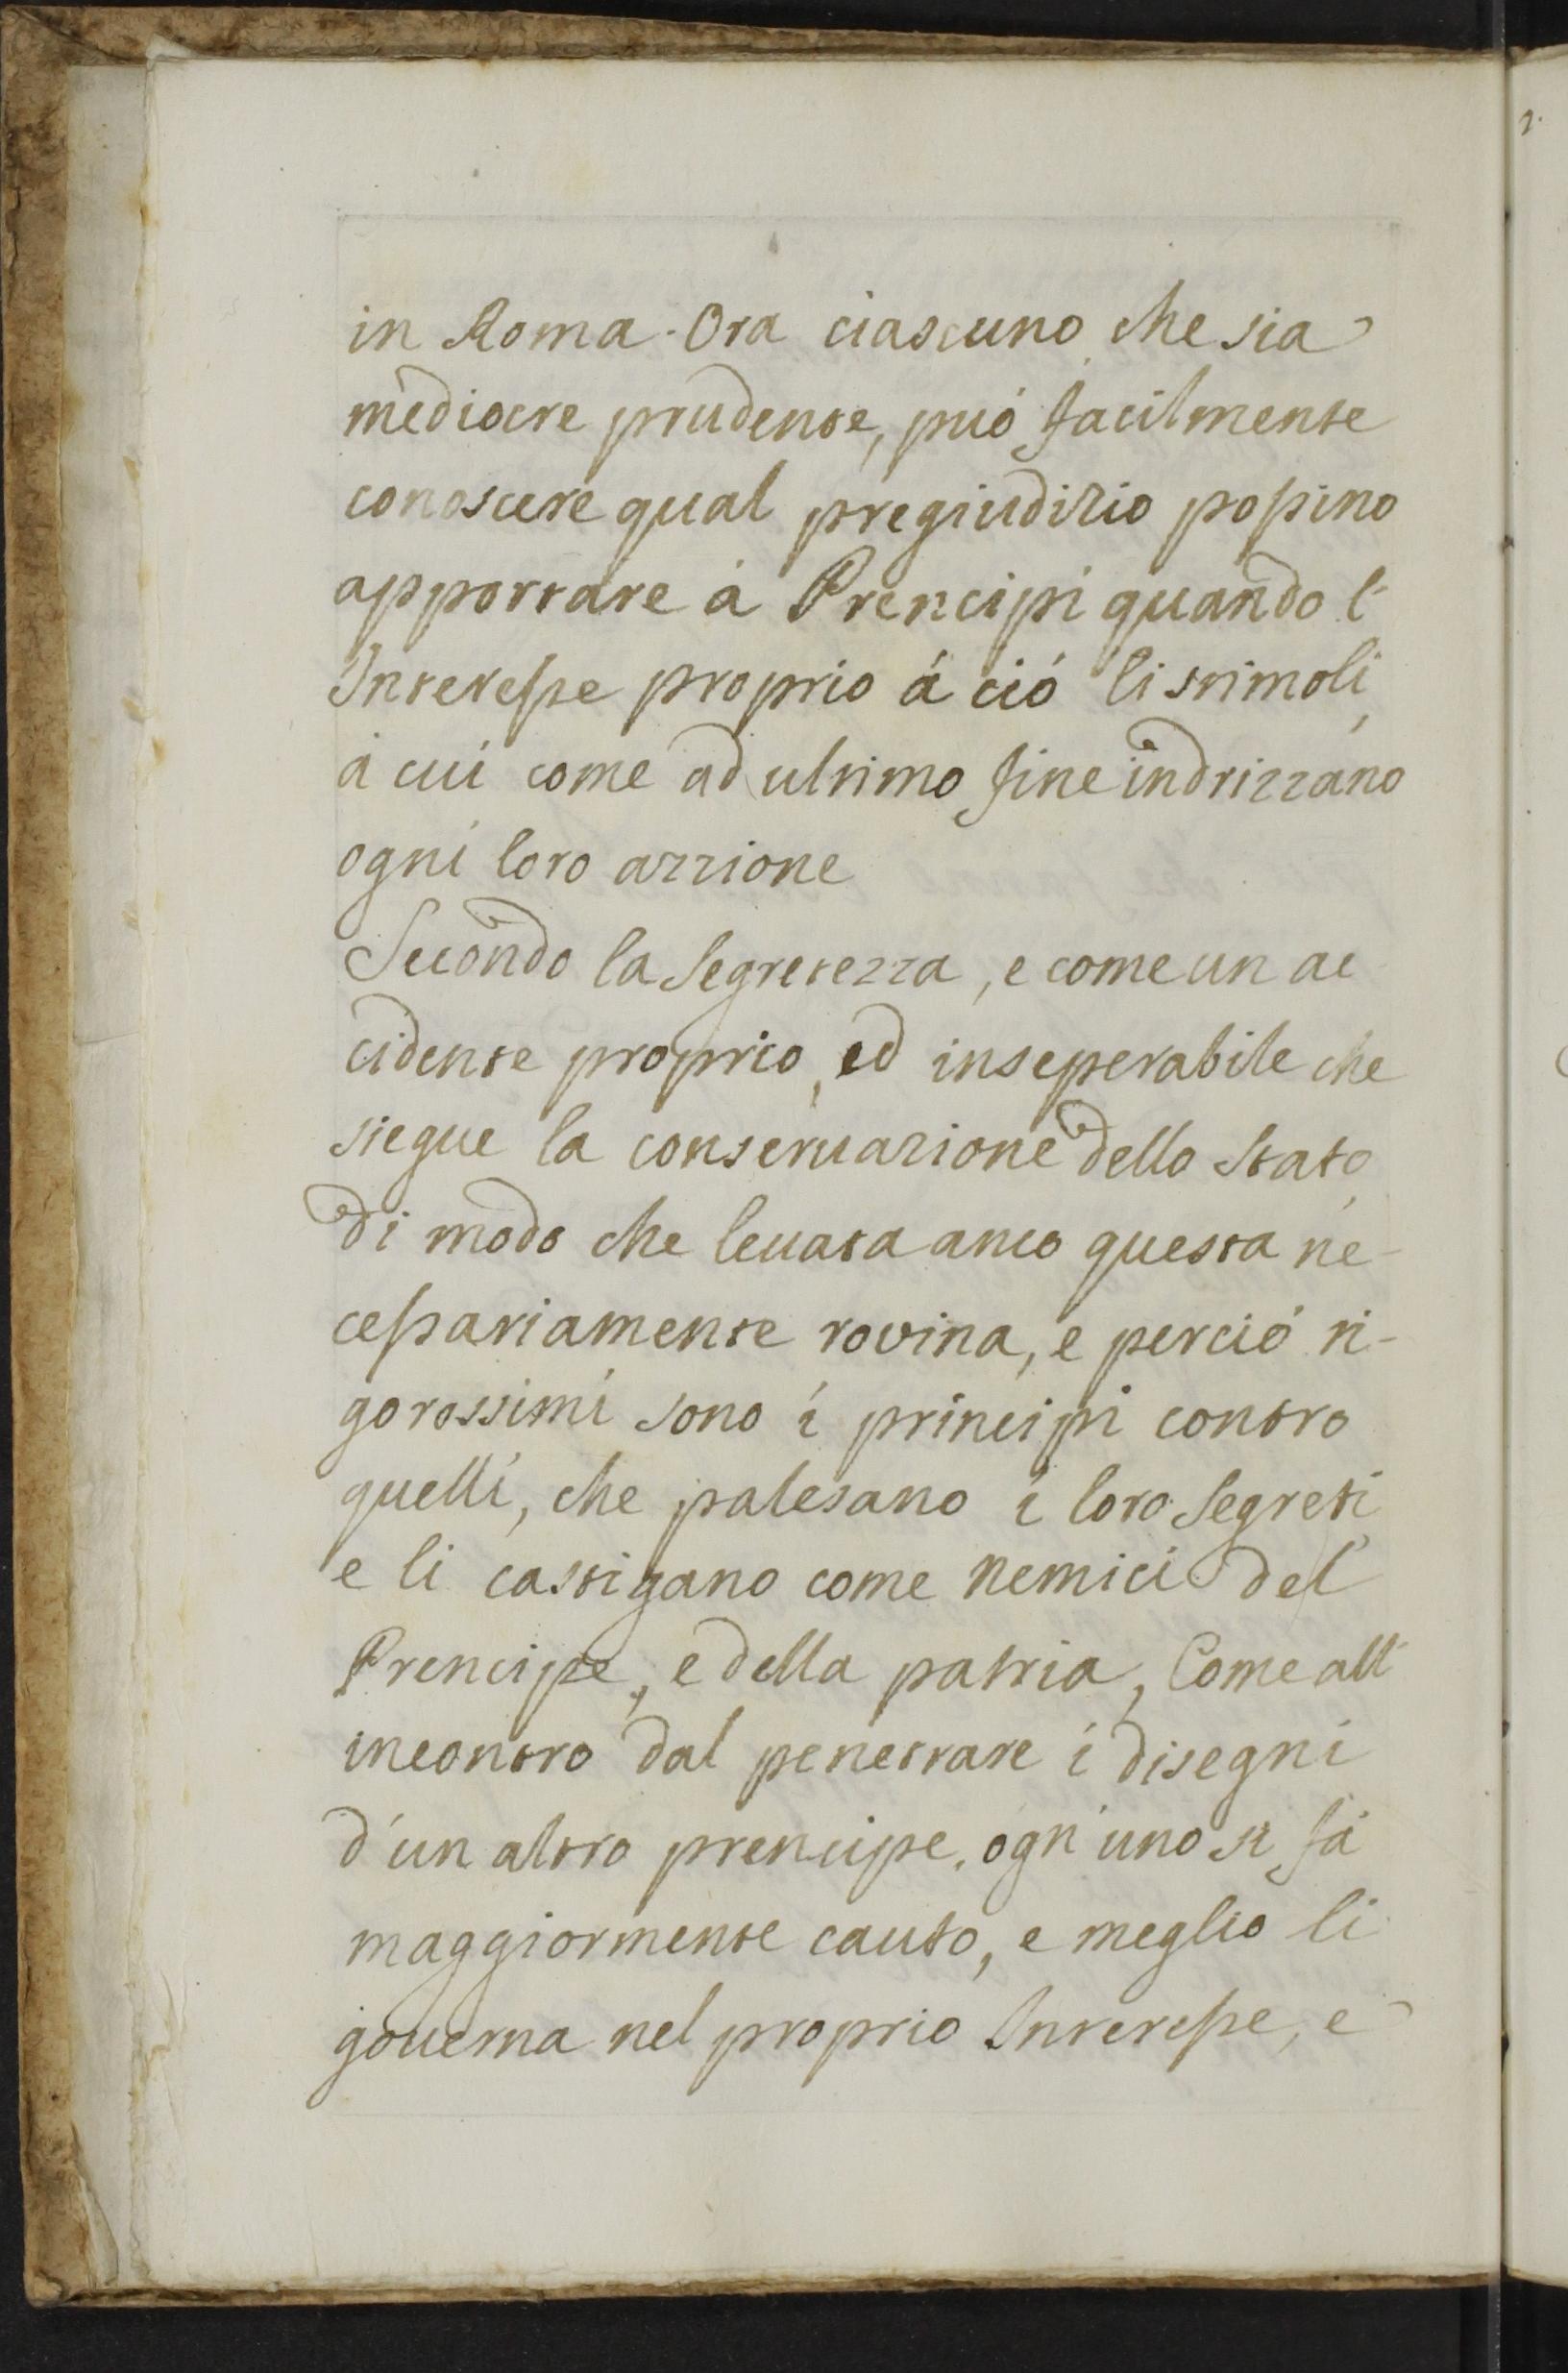 in Roma. Ora ciascuno che sia
mediocre prudente, può facilmente
conoscere qual pregiudizio possino
apportare à Prencipi quando l'
Interesse proprio à ciò li stimoli,
à cui come ad ultimo fine indrizzano
ogni loro azzione
Secondo la Segretezza, e come un ac
cidente proprio, ed inseperabile che
siegue la conseruazione dello Stato,
di modo che leuata anco questa ne-
cessariamente rovina, e perciò ri-
gorossimi sono i principi contro
quelli, che palesano i loro Segreti
e li castigano come nemici del
Prencipe, e della patria, Come all'
incontro dal penetrare i disegni
d'un altro prencipe, ogn'uno si fà
maggiormente cauto, e meglio li
gouerna nel proprio Interesse, e
2.